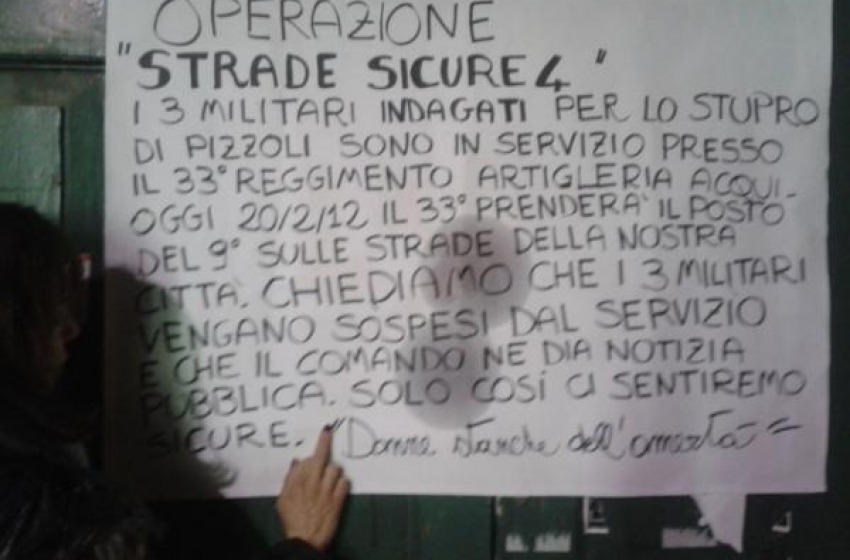 OPERAZIONE
"STRADE SICURE 4"
I 3 MILITARI INDAGATI PER LO STUPRO
DI PIZZOLI SONO IN SERVIZIO PRESSO
IL 33° REGGIMENTO ARTIGLERIA ACQUI-
OGGI 20/2/12 IL 33° PRENDERA' IL POSTO
DEL 9° SULLE STRADE DELLA NOSTRA
CITTÀ. CHIEDIAMO CHE I 3 MILITARI
VENGANO SOSPESI DAL SERVIZIO
E CHE IL COMANDO NE DIA NOTIZIA
PUBBLICA. SOLO COSÍ CI SENTIREMO
SICURE. "Donne stanche dell'omertà"